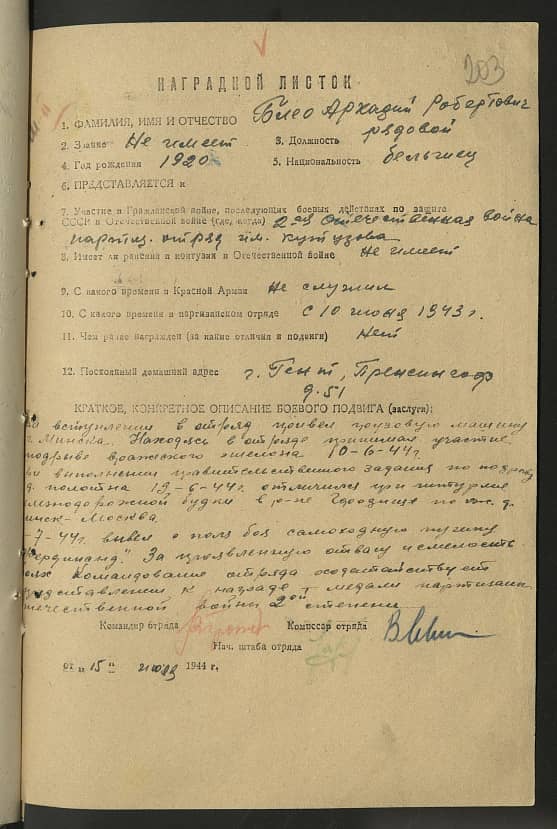 203
НАГРАДНОЙ ЛИСТОК
1. ФАМИЛИЯ, ИМЯ И ОТЧЕСТВО Блео Аркадий Робертович
2. Звание Не имеет 3. Должность рядовой
4. Год рождения 1920 5. Национальность бельгиец
6. ПРЕДСТАВЛЯЕТСЯ к
7. Участие в Гражданской войне, последующих боевых действиях по защите
СССР и Отечественной войне (где, когда) 2-ая отечественная война
партиз. отряд им. Кутузова
8. Имеет ли ранения и контузии в Отечественной войне Не имеет
9. С какого времени в Красной Армии Не служил
10. С какого времени в партизанском отряде с 10 июня 1943 г.
11. Чем ранее награжден (за какие отличия и подвиги) Нет
12. Постоянный домашний адрес г. Гент, Пренсингоф
д. 51
КРАТКОЕ, КОНКРЕТНОЕ ОПИСАНИЕ БОЕВОГО ПОДВИГА (заслуги):
вступлении в отряд привел грузовую машину
г. Минска. Находясь в отряде принимал участие
подрыве вражеского эшелона 10-6-44г.
выполнении правительственного задания по подрыву
д. полотна 19-6-44г. отличился при штурме
будки в р-не Городище по ж. д.
Москва
-7-44г. вывел с поля боя самоходную пушку
". За проявленную отвагу и смелость
Командование отряда ходатайствует
к награде медали партизана
отечественной войны 2ой степени
Командир отряда Комиссар отряда
Нач. штаба отряда
от „15" июля 1944 г.